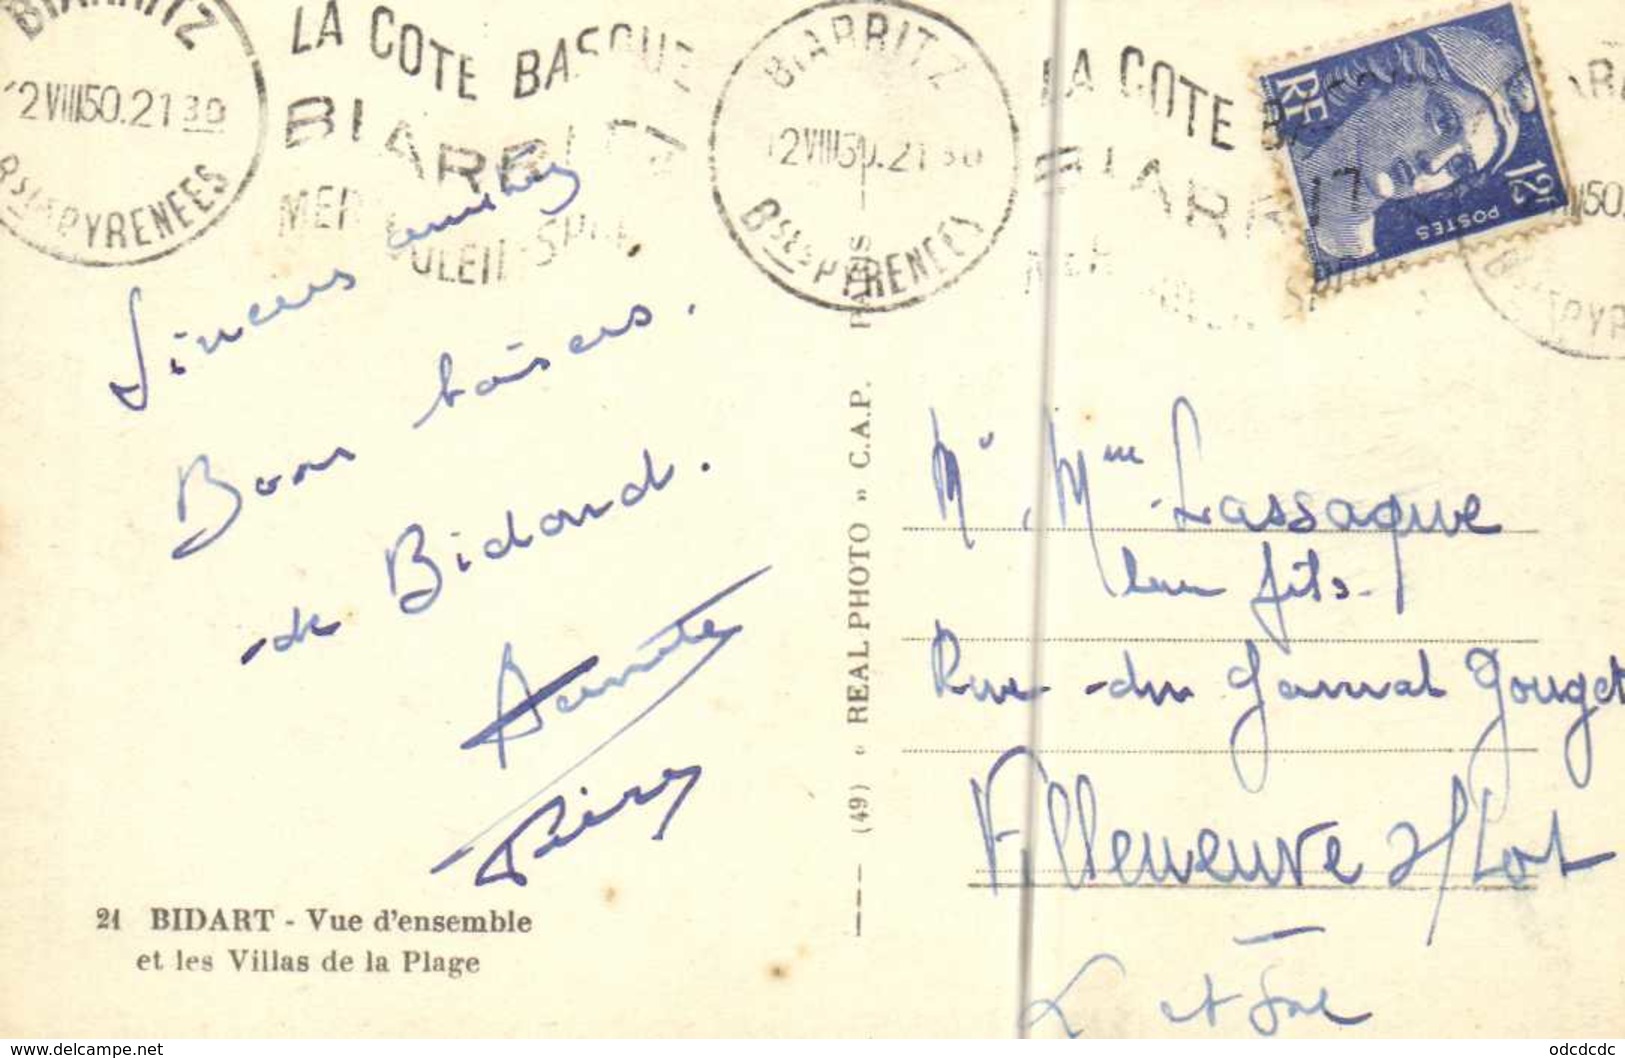 BIARRITZ
12 VIII 50.21 30
Bses PYRENEES
LA COTE BASQUE
BIARRITZ
MER SOLEIL SPORTS
BIARRITZ
12 VIII 50.21 30
Bses PYRENEES
LA COTE BASQUE
BIARR
RF
12F
POSTES
Sincères amitiés
Bons baisers.
de Bidard.
(49) « REAL PHOTO » C.A.P. PARIS
Mr, Mme Lassaque
leur fils.
Rue du Général Gouget
Villeneuve s/Lot
L et Gne
21 BIDART - Vue d'ensemble
et les Villas de la Plage
www.delcampe.net
odcdcdc